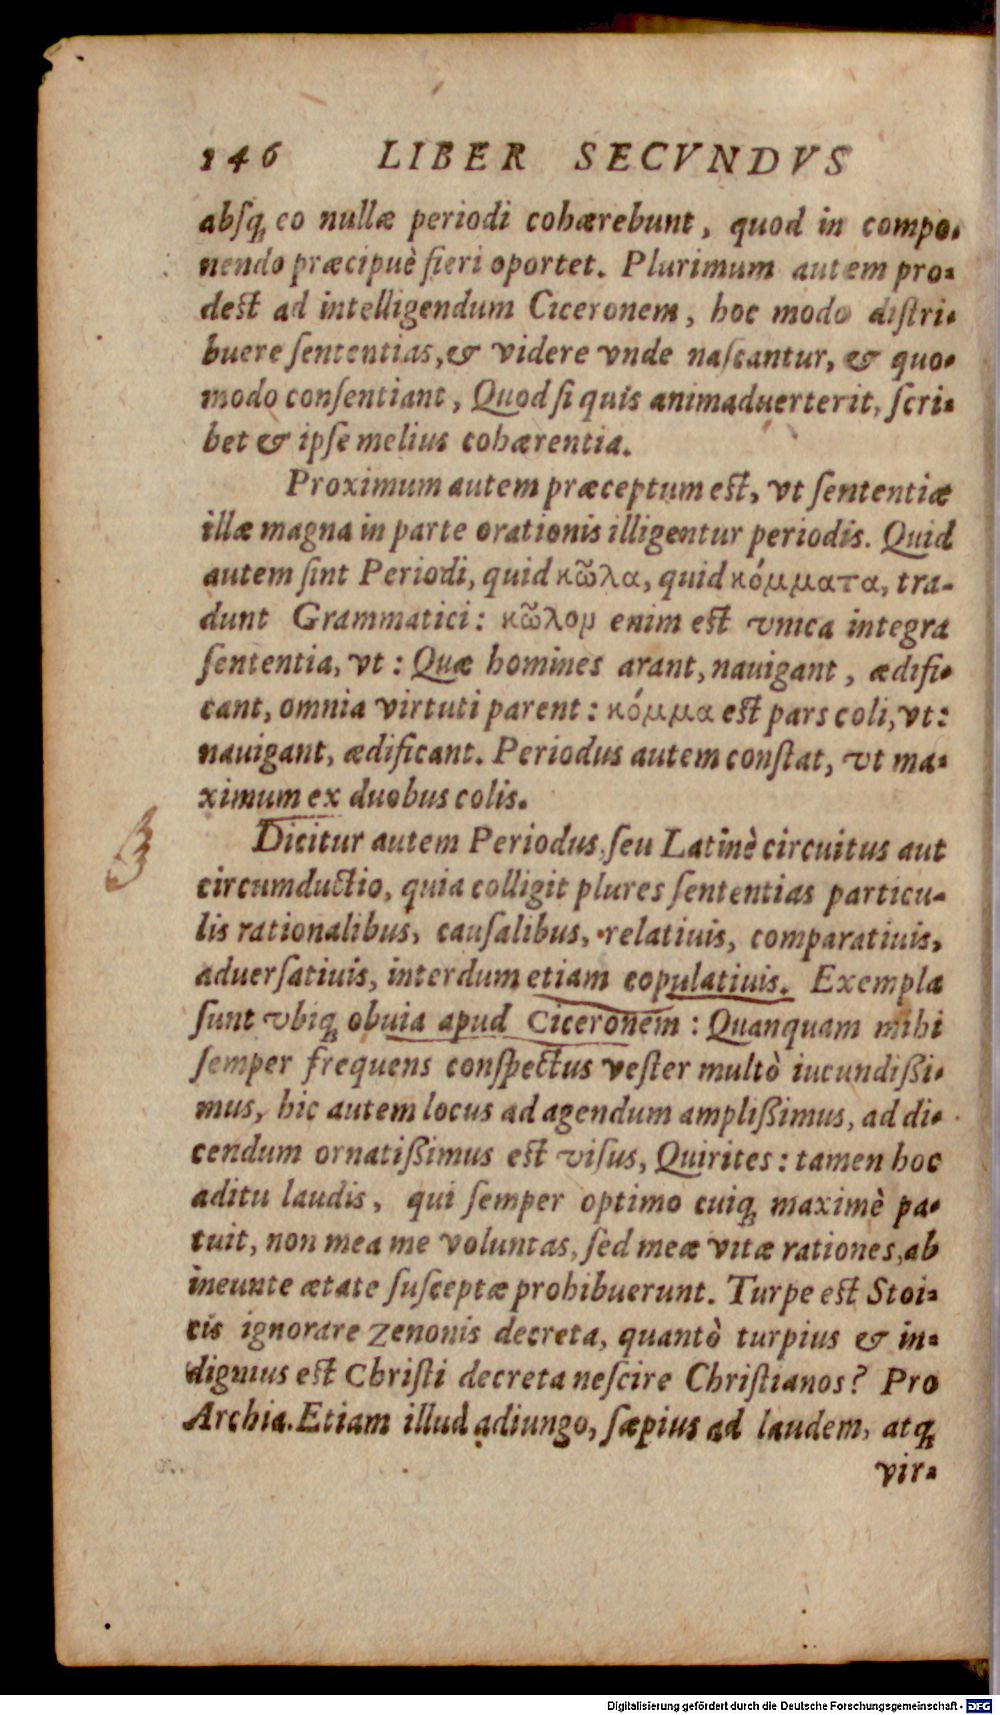 146 LIBER SECVNDVS
absq; eo nullæ periodi cohærebunt, quod in compo-
nendo præcipuè fieri oportet. Plurimum autem pro-
dest ad intelligendum Ciceronem, hoc modo distri-
buere sententias, & videre vnde nascantur, & quo-
modo consentiant, Quod si quis animaduerterit, scri-
bet & ipse melius cohærentia.
Proximum autem præceptum est, vt sententiæ
illæ magna in parte orationis illigentur periodis. Quid
autem sint Periodi, quid κῶλα, quid κόμματα, tra-
dunt Grammatici: κῶλον enim est vnica integra
sententia, vt: Quæ homines arant, nauigant, ædifi-
cant, omnia virtuti parent: κόμμα est pars coli, vt:
nauigant, ædificant. Periodus autem constat, vt ma-
ximum ex duobus colis.
Dicitur autem Periodus, seu Latinè circuitus aut
circumductio, quia colligit plures sententias particu-
lis rationalibus, causalibus, relatiuis, comparatiuis,
aduersatiuis, interdum etiam copulatiuis. Exempla
sunt vbiq; obuia apud Ciceronem: Quanquam mihi
semper frequens conspectus vester multò iucundissi-
mus, hic autem locus ad agendum amplissimus, ad di-
cendum ornatissimus est visus, Quirites: tamen hoc
aditu laudis, qui semper optimo cuiq; maximè pa-
tuit, non mea me voluntas, sed meæ vitæ rationes, ab
ineunte ætate susceptæ prohibuerunt. Turpe est Stoi-
cis ignorare Zenonis decreta, quantò turpius & in-
dignius est Christi decreta nescire Christianos? Pro
Archia. Etiam illud adiungo, sæpius ad laudem, atq;
vir-
Digitalisierung gefördert durch die Deutsche Forschungsgemeinschaft - DFG